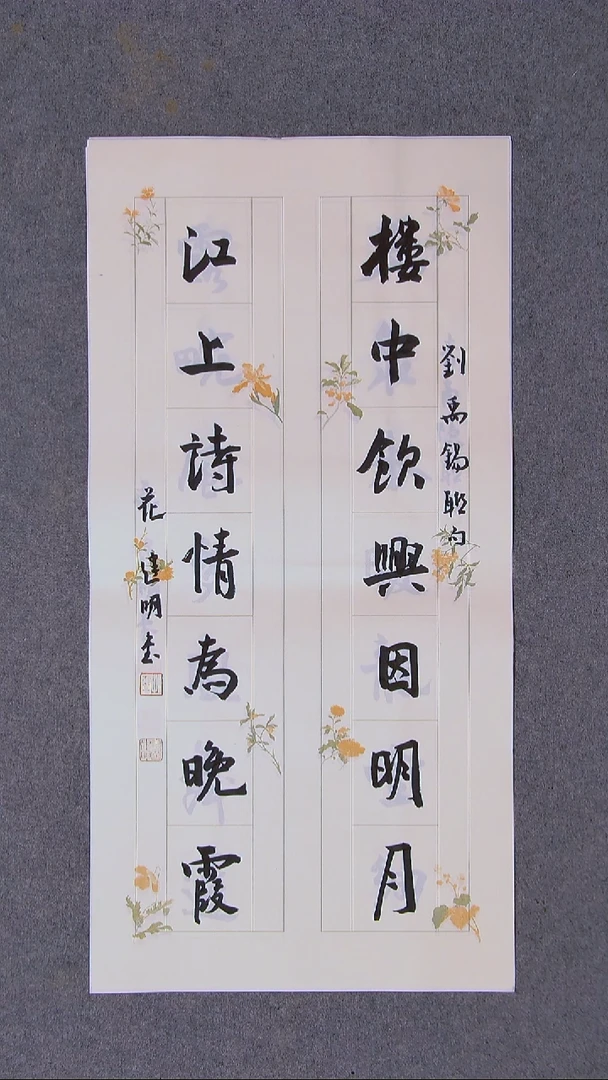 劉禹錫聯句
樓中飲興因明月
江上詩情為晚霞
花建明書